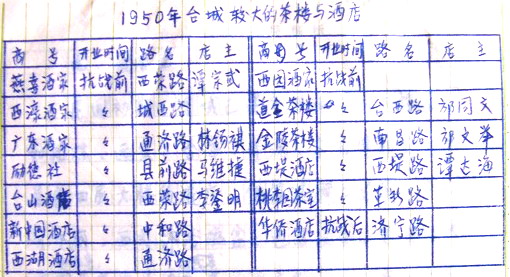 1950年台城较大的茶楼与酒店
商号 开业时间 路名 店主 商号 开业时间 路名 店主
燕喜酒家 抗战前 西荣路 谭宗式 西园酒店 抗战前
西濠酒家 〃 城西路 道金茶楼 〃 台西路 邝同文
广东酒家 〃 通济路 林锡祺 金陵茶楼 〃 南昌路 邝文华
励德社 〃 县前路 马维捷 西堤酒店 〃 西堤路 谭达海
台山酒店 〃 西荣路 李鎏明 桃李园茶室 〃 革新路
新中国酒店 〃 中和路 华侨酒店 抗战后 济宁路
西湖酒店 〃 通济路